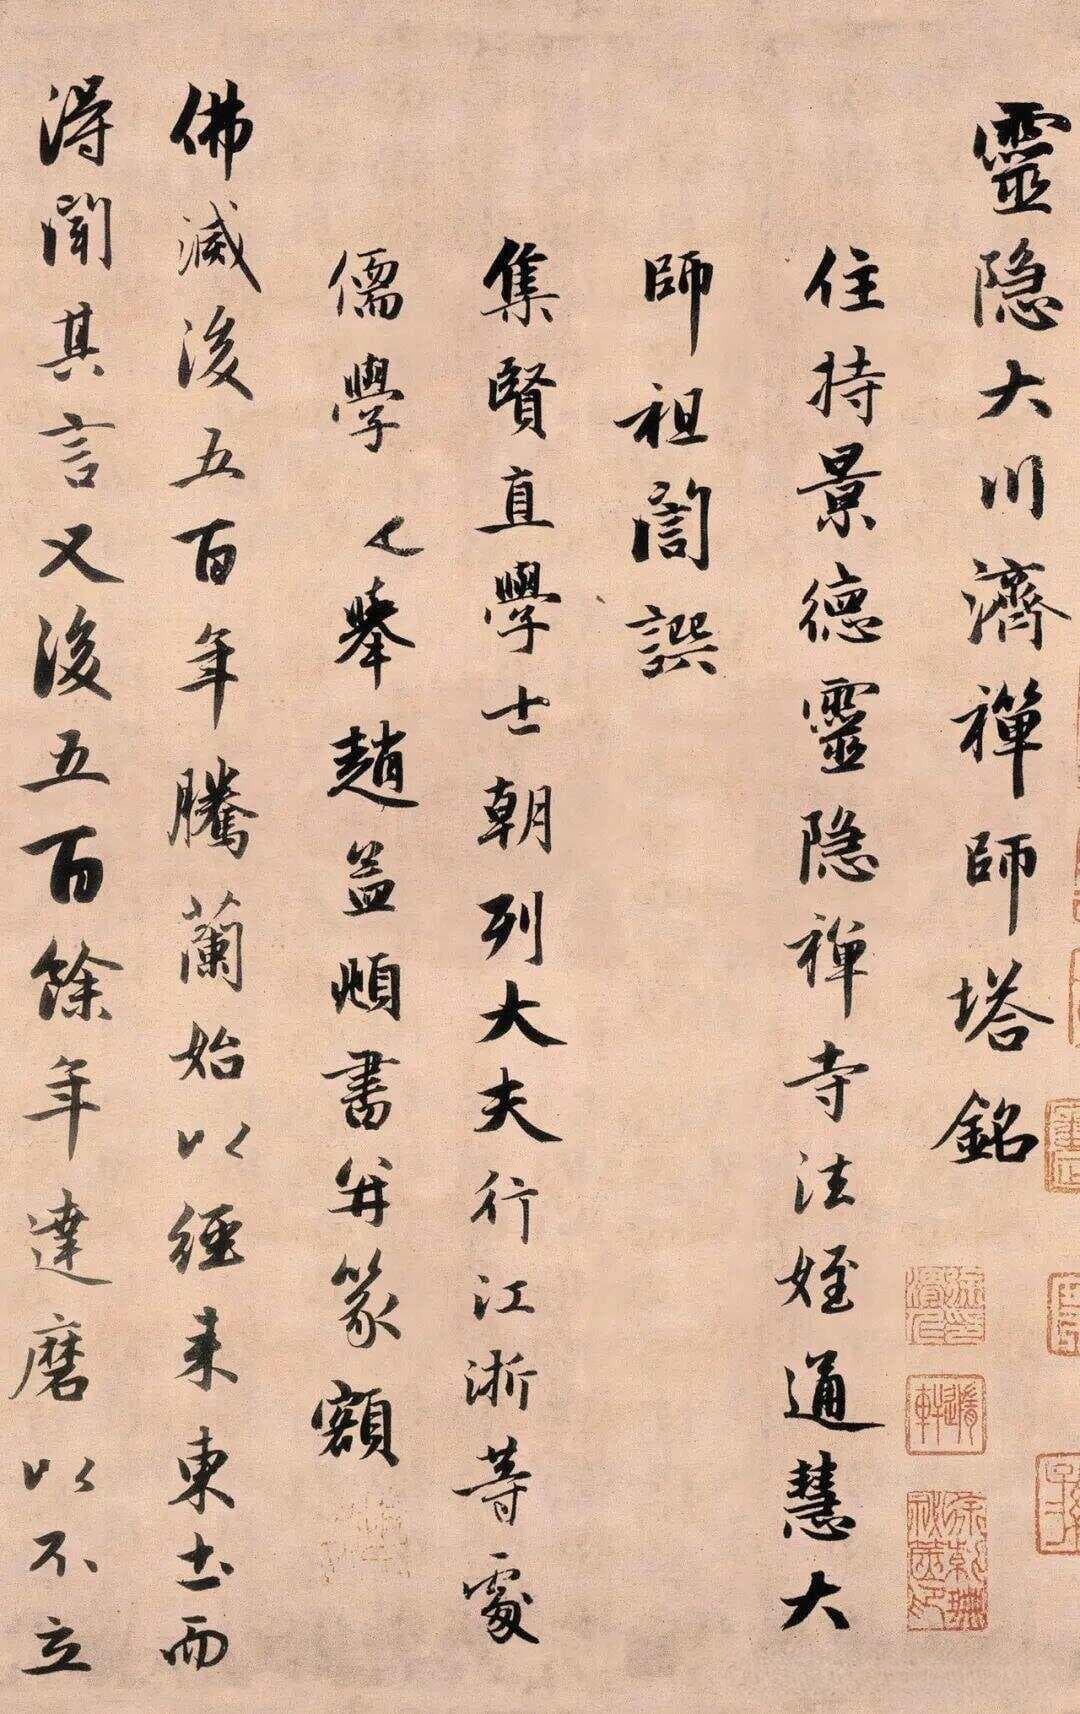 靈隐大川濟禪師塔銘
住持景德靈隐禪寺法姪通慧大
師祖誾譔
集賢直學士朝列大夫行江浙等處
儒學〻舉趙孟頫書并篆額
佛滅後五百年騰蘭始以經来東土而
得聞其言又後五百餘年達磨以不立